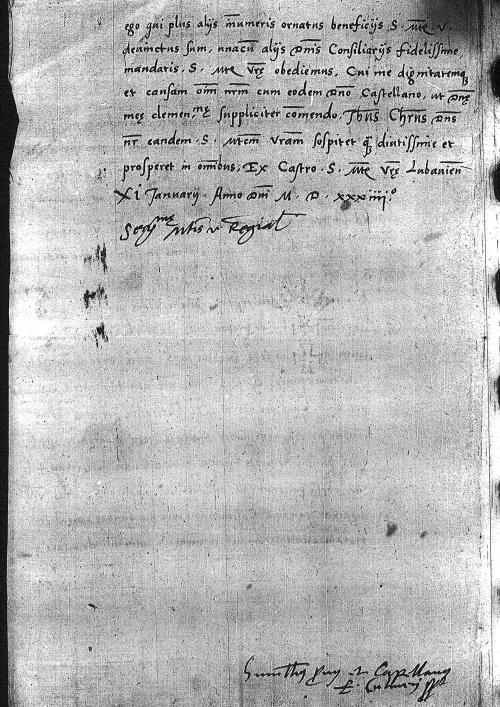 ego qui plus alijs mūneris ornatus beneficijs S. Mte v.
deuinctus sum, unacū alijs Dnis Consiliarijs fidelissime
mandatis. S. Mte Vrę obediemus, Cui me dignitatemq
et causam oīm nrm cum eodem Dno Castellano, ut Dnę
meę clemen.mę suppliciter cōmendo. Jhus Chrus Dns
nr eandem. S. Mtem Vram sospitet q diutissime et
prosperet in omībus. Ex Castro. S. Mte Vrę Lubanien
XI Januarij. Anno Dnī M. D. xxxiiij.o
Mtis v. Regial
et Capellanus